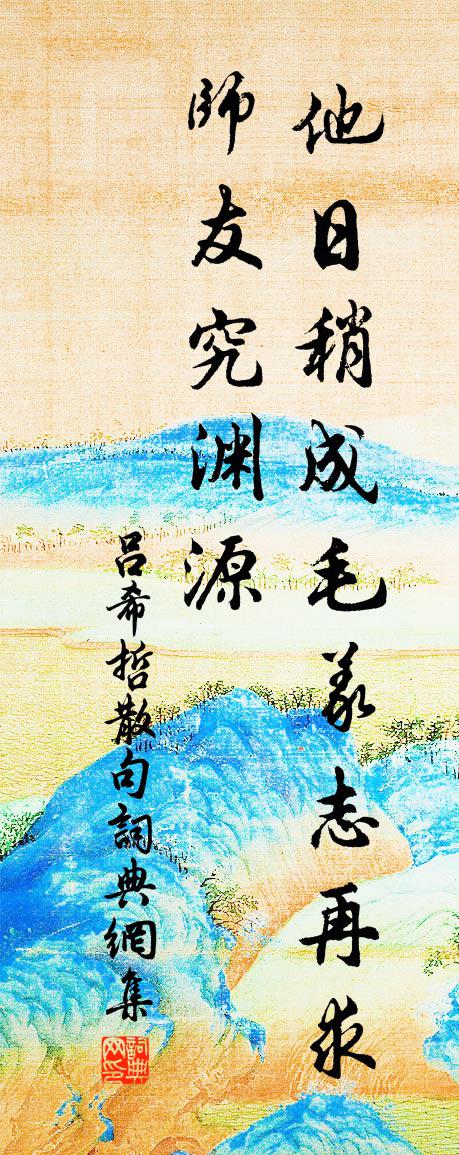 他日稍成毛義志再求
師友究渊源
吕希哲散句詞典網集
詞典网印